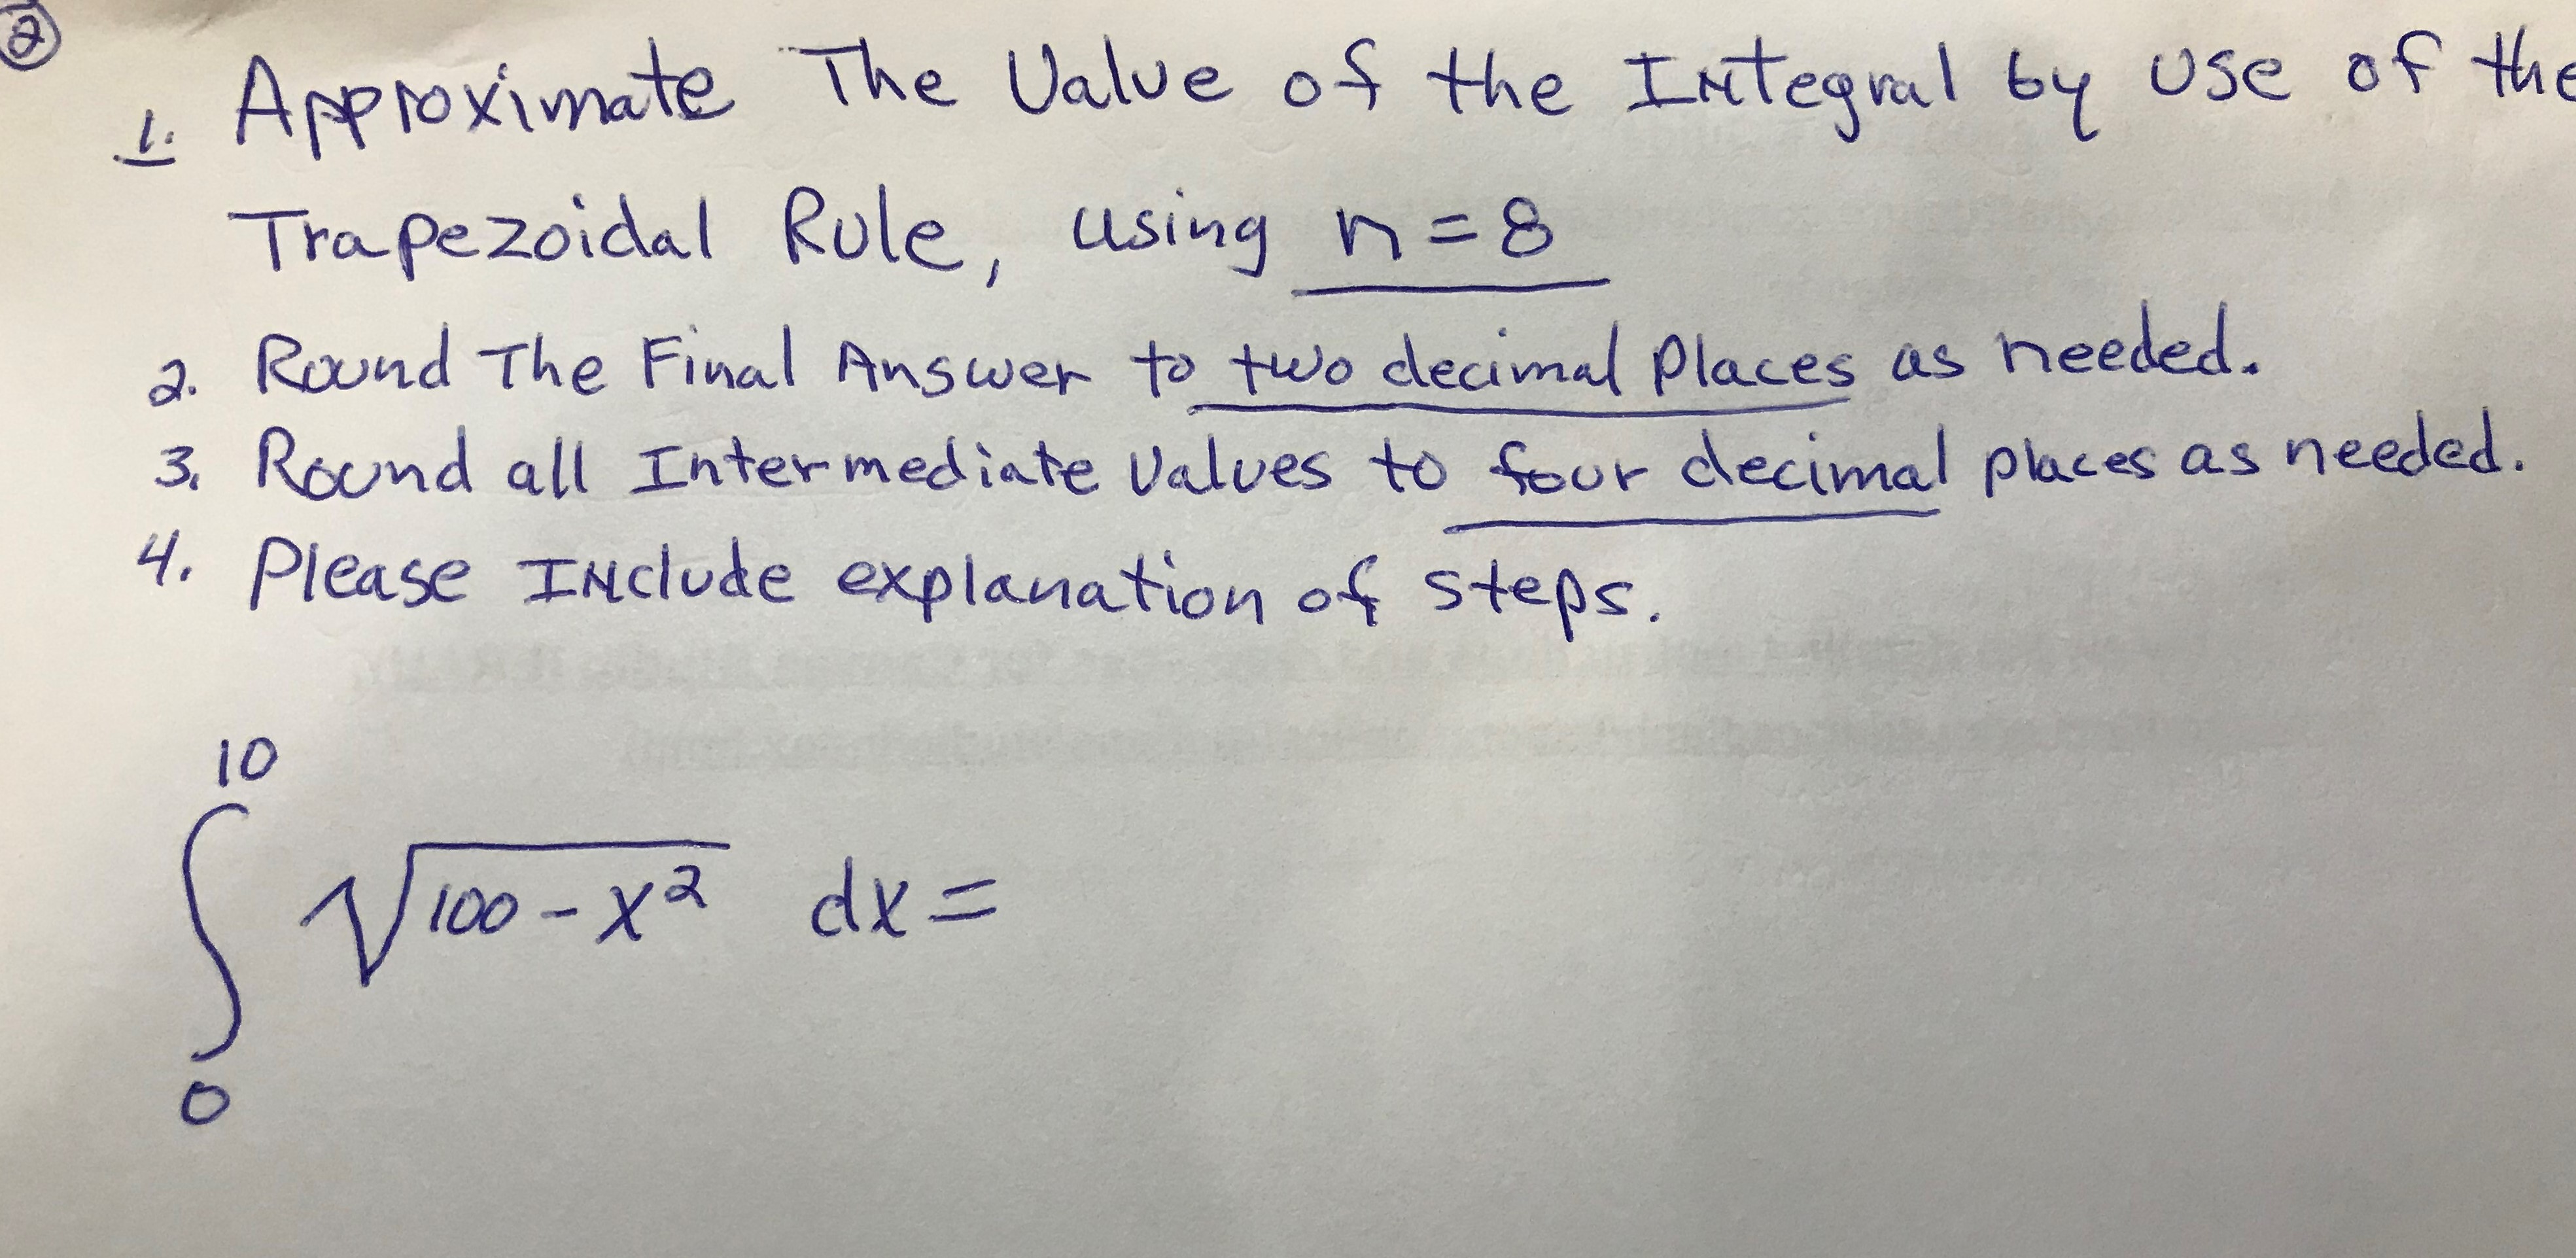 ②
1. Approximate The Value of the Integral by use of the
Trapezoidal Rule, using n=8
2. Round The Final Answer to two decimal places as needed.
3. Round all Intermediate values to four decimal places as needed.
4. Please Include explanation of steps.
10
∫ √100-x² dx=
0